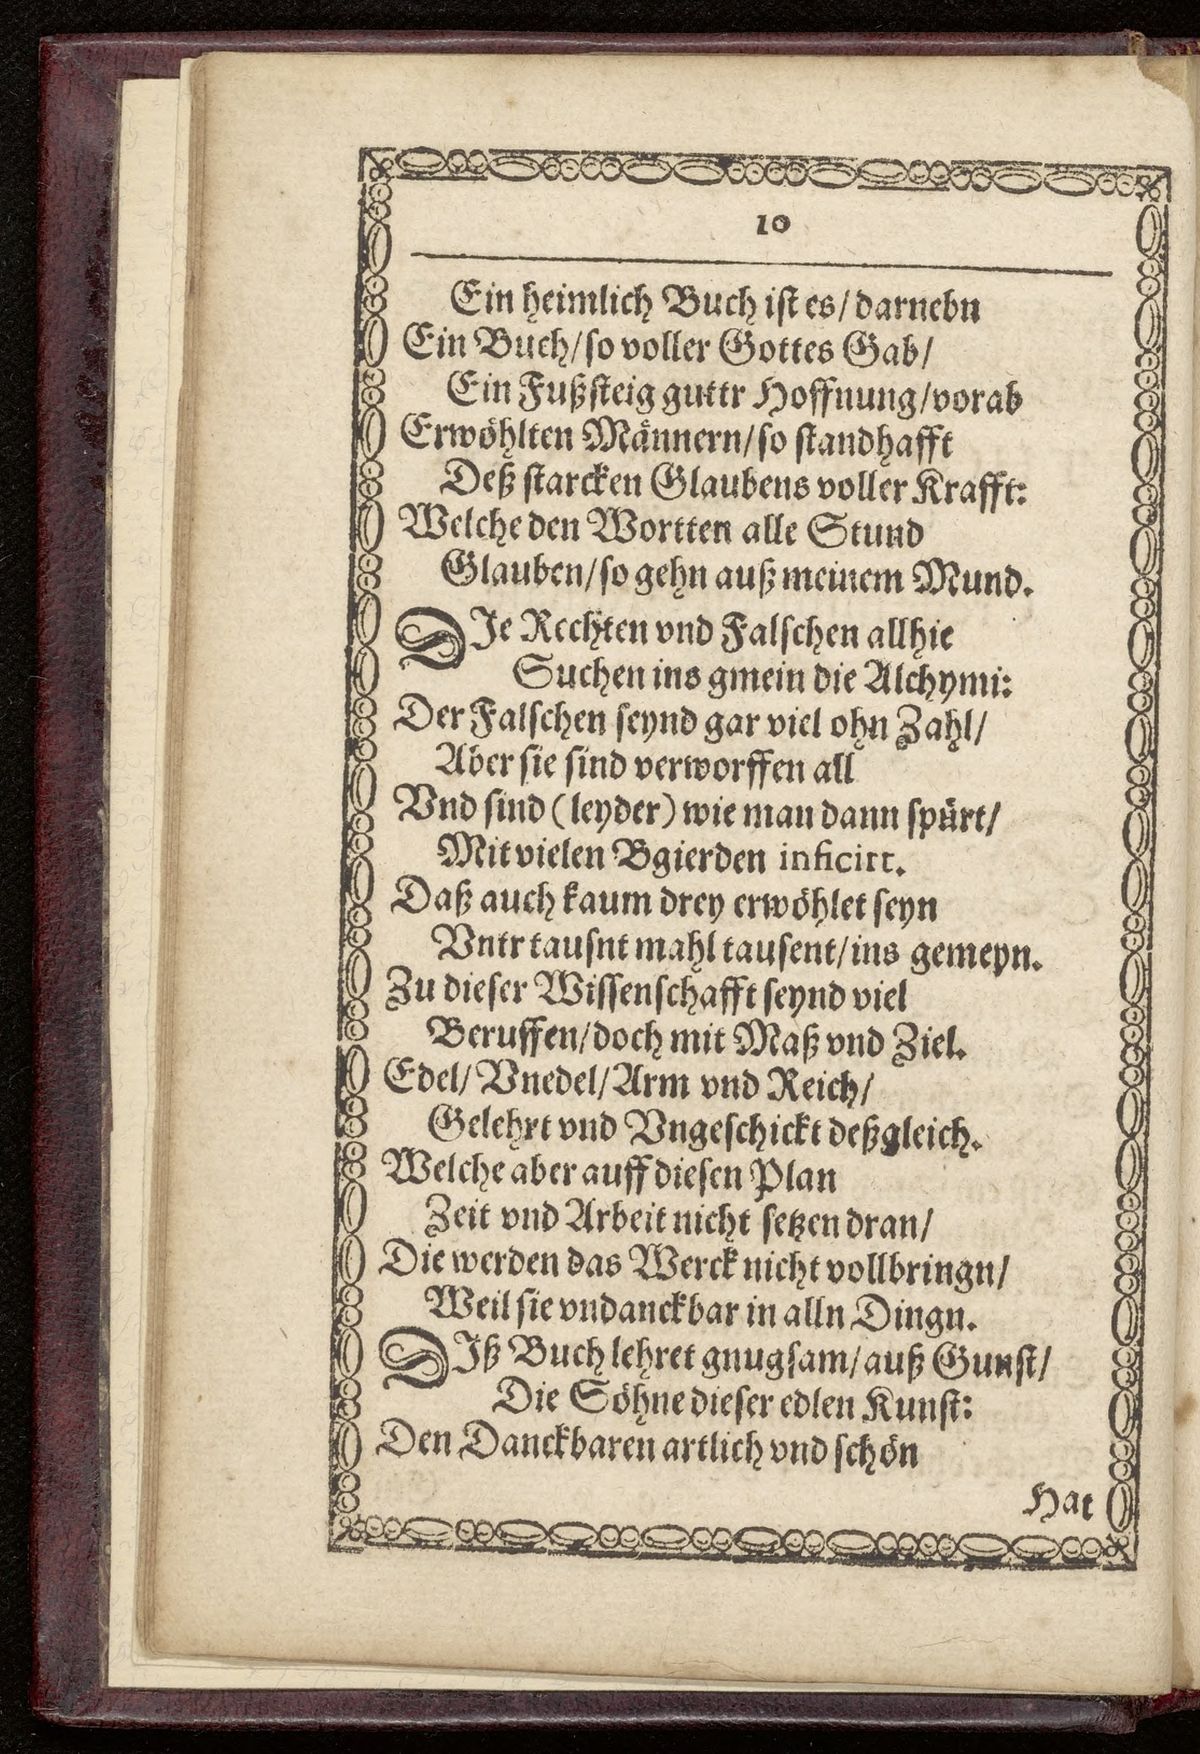 10
Ein heimlich Buch ist es/ darnebn
Ein Buch/ so voller Gottes Gab/
Ein Fußsteig guttr Hoffnung/ vorab
Erwöhlten Männern/ so standhafft
Deß starcken Glaubens voller Krafft:
Welche den Wortten alle Stund
Glauben/ so gehn auß meinem Mund.
DJe Rechten vnd Falschen allhie
Suchen ins gmein die Alchymi:
Der Falschen seynd gar viel ohn Zahl/
Aber sie sind verworffen all
Vnd sind (leyder) wie man dann spürt/
Mit vielen Bgierden inficirt.
Daß auch kaum drey erwöhlet seyn
Vntr tausnt mahl tausent/ ins gemeyn.
Zu dieser Wissenschafft seynd viel
Beruffen/ doch mit Maß vnd Ziel.
Edel/ Vnedel/ Arm vnd Reich/
Gelehrt vnd Vngeschickt deßgleich.
Welche aber auff diesen Plan
Zeit vnd Arbeit nicht setzen dran/
Die werden das Werck nicht vollbringn/
Weil sie vndanckbar in alln Dingn.
DJß Buch lehret gnugsam/ auß Gunst/
Die Söhne dieser edlen Kunst:
Den Danckbaren artlich vnd schön
Hat